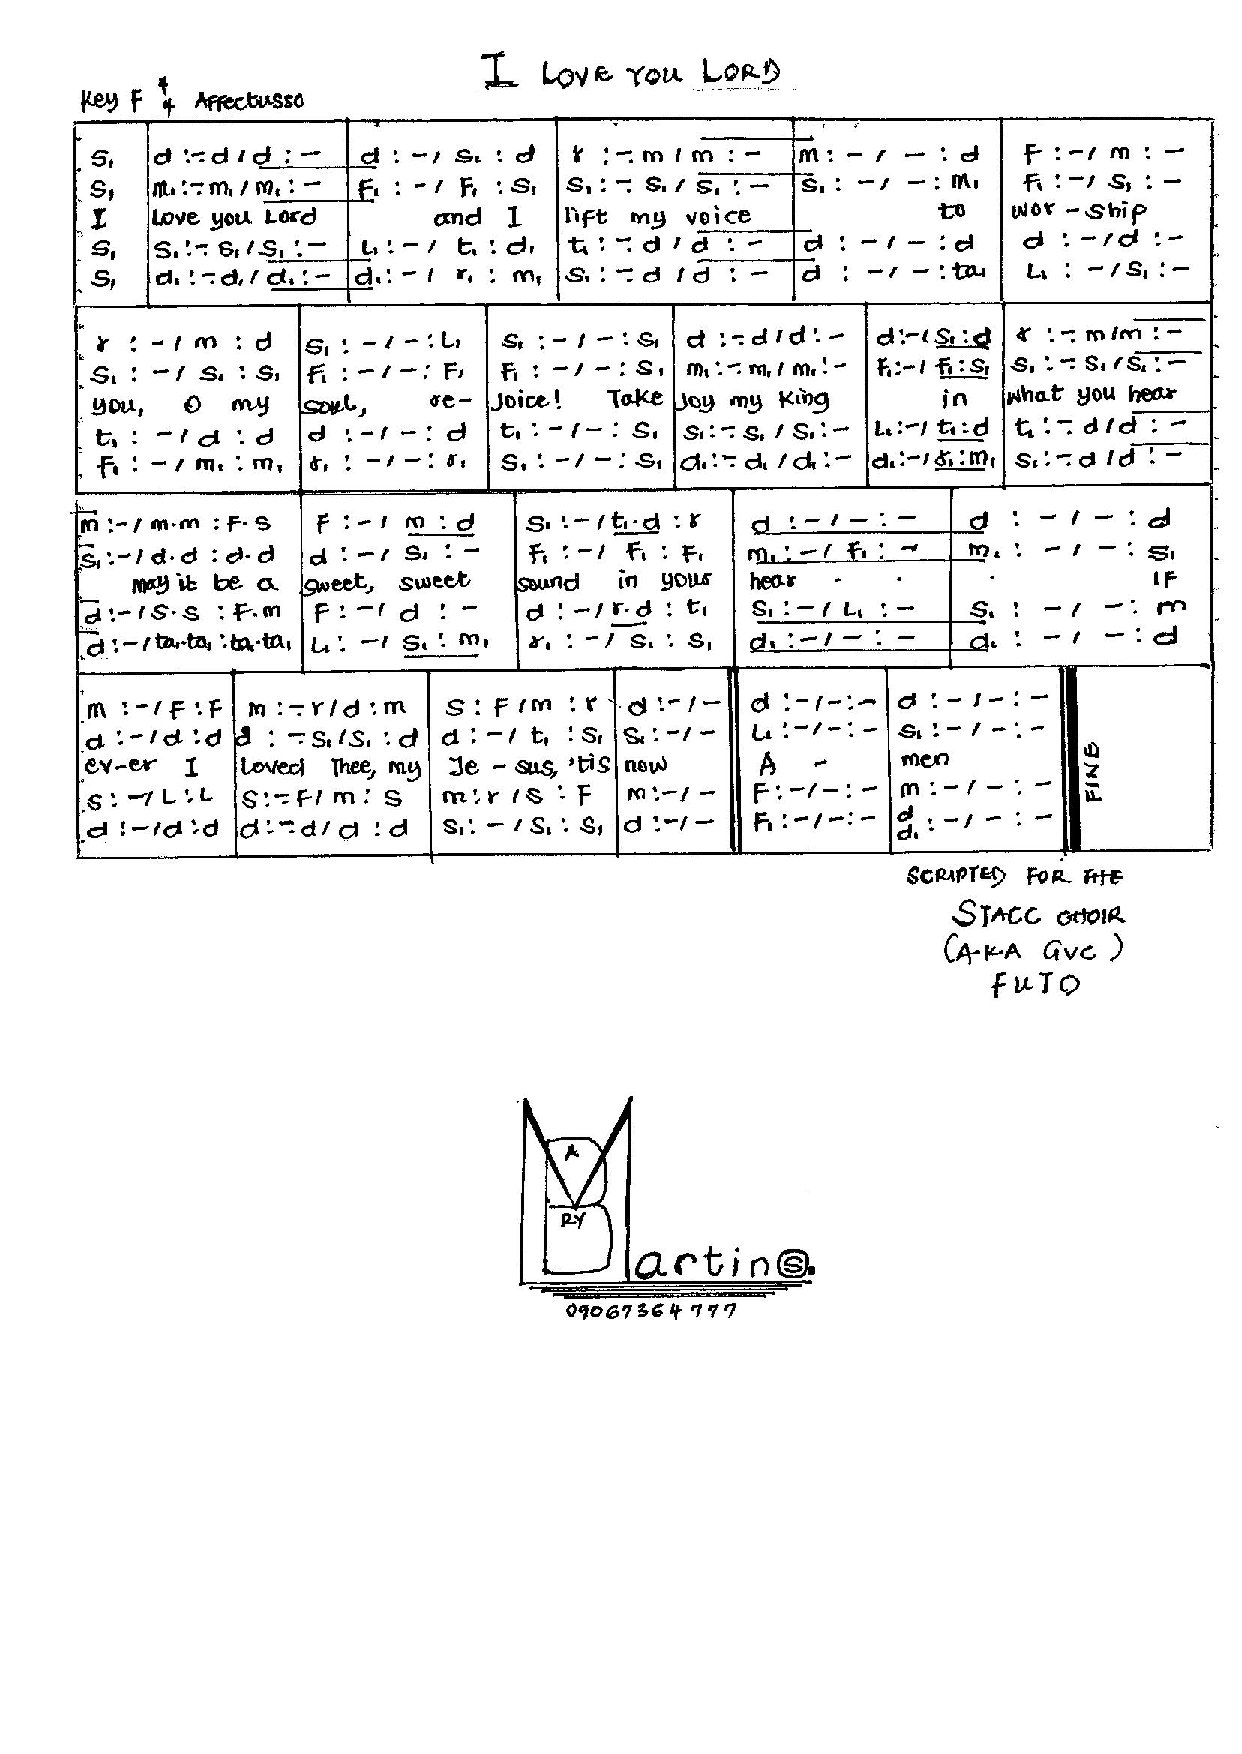 I LOVE YOU LORD
Key F 4/4 Affectusso
S₁ | d :-.d / d : - | d : - / s₁ : d | r :-.m / m : - | m : - / - : d | F : - / m : -
S₁ | m₁ :-.m₁ / m₁ : - | F₁ : - / F₁ : S₁ | S₁ :-. S₁ / S₁ : - | S₁ : - / - : m₁ | F₁ : - / S₁ : -
I | Love you Lord | and I | lift my voice | to | wor - ship
S₁ | S₁ :-. S₁ / S₁ : - | L₁ : - / t₁ : d₁ | t₁ :-. d / d : - | d : - / - : d | d : - / d : -
S₁ | d₁ :-. d₁ / d₁ : - | d₁ : - / r₁ : m₁ | S₁ :-. d / d : - | d : - / - : ta₁ | L₁ : - / S₁ : -
r : - / m : d | S₁ : - / - : L₁ | S₁ : - / - : S₁ | d :-. d / d : - | d : - / S₁ : d | r :-. m / m : -
S₁ : - / S₁ : S₁ | F₁ : - / - : F₁ | F₁ : - / - : S₁ | m₁ :-. m₁ / m₁ : - | F₁ : - / F₁ : S₁ | S₁ :-. S₁ / S₁ : -
you, O my | soul, re- | Joice! Take | Joy my King | in | what you hear
t₁ : - / d : d | d : - / - : d | t₁ : - / - : S₁ | S₁ :-. S₁ / S₁ : - | L₁ : - / t₁ : d | t₁ :-. d / d : -
F₁ : - / m₁ : m₁ | r₁ : - / - : r₁ | S₁ : - / - : S₁ | d₁ :-. d₁ / d₁ : - | d₁ : - / r₁ : m₁ | S₁ :-. d / d : -
m : - / m.m : F.S | F : - / m : d | S₁ : - / t₁.d : r | d : - / - : - | d : - / - : d
S₁ : - / d.d : d.d | d : - / S₁ : - | F₁ : - / F₁ : F₁ | m₁ : - / F₁ : - | m₁ : - / - : S₁
may it be a | sweet, sweet | sound in your | hear . . | . IF
d : - / S.S : F.m | F : - / d : - | d : - / r.d : t₁ | S₁ : - / L₁ : - | S₁ : - / - : m
d : - / ta₁.ta₁ : ta₁.ta₁ | L₁ : - / S₁ : m₁ | r₁ : - / S₁ : S₁ | d₁ : - / - : - | d₁ : - / - : d
m : - / F : F | m :-. r / d : m | S : F / m : r | d : - / - | d : - / - : - | d : - / - : -
d : - / d : d | d :-. S₁ / S₁ : d | d : - / t₁ : S₁ | S₁ : - / - | L₁ : - / - : - | S₁ : - / - : -
ev-er I | Loved Thee, my | Je - sus, 'tis | now | A - | men | FINE
S : - / L : L | S :-. F / m : S | m : r / S : F | m : - / - | F : - / - : - | m : - / - : -
d : - / d : d | d :-. d / d : d | S₁ : - / S₁ : S₁ | d : - / - | F₁ : - / - : - | d d₁ : - / - : -
SCRIPTED FOR THE
STACC CHOIR
(A.K.A GVC)
FUTO
A
RY
Martins.
09067364777